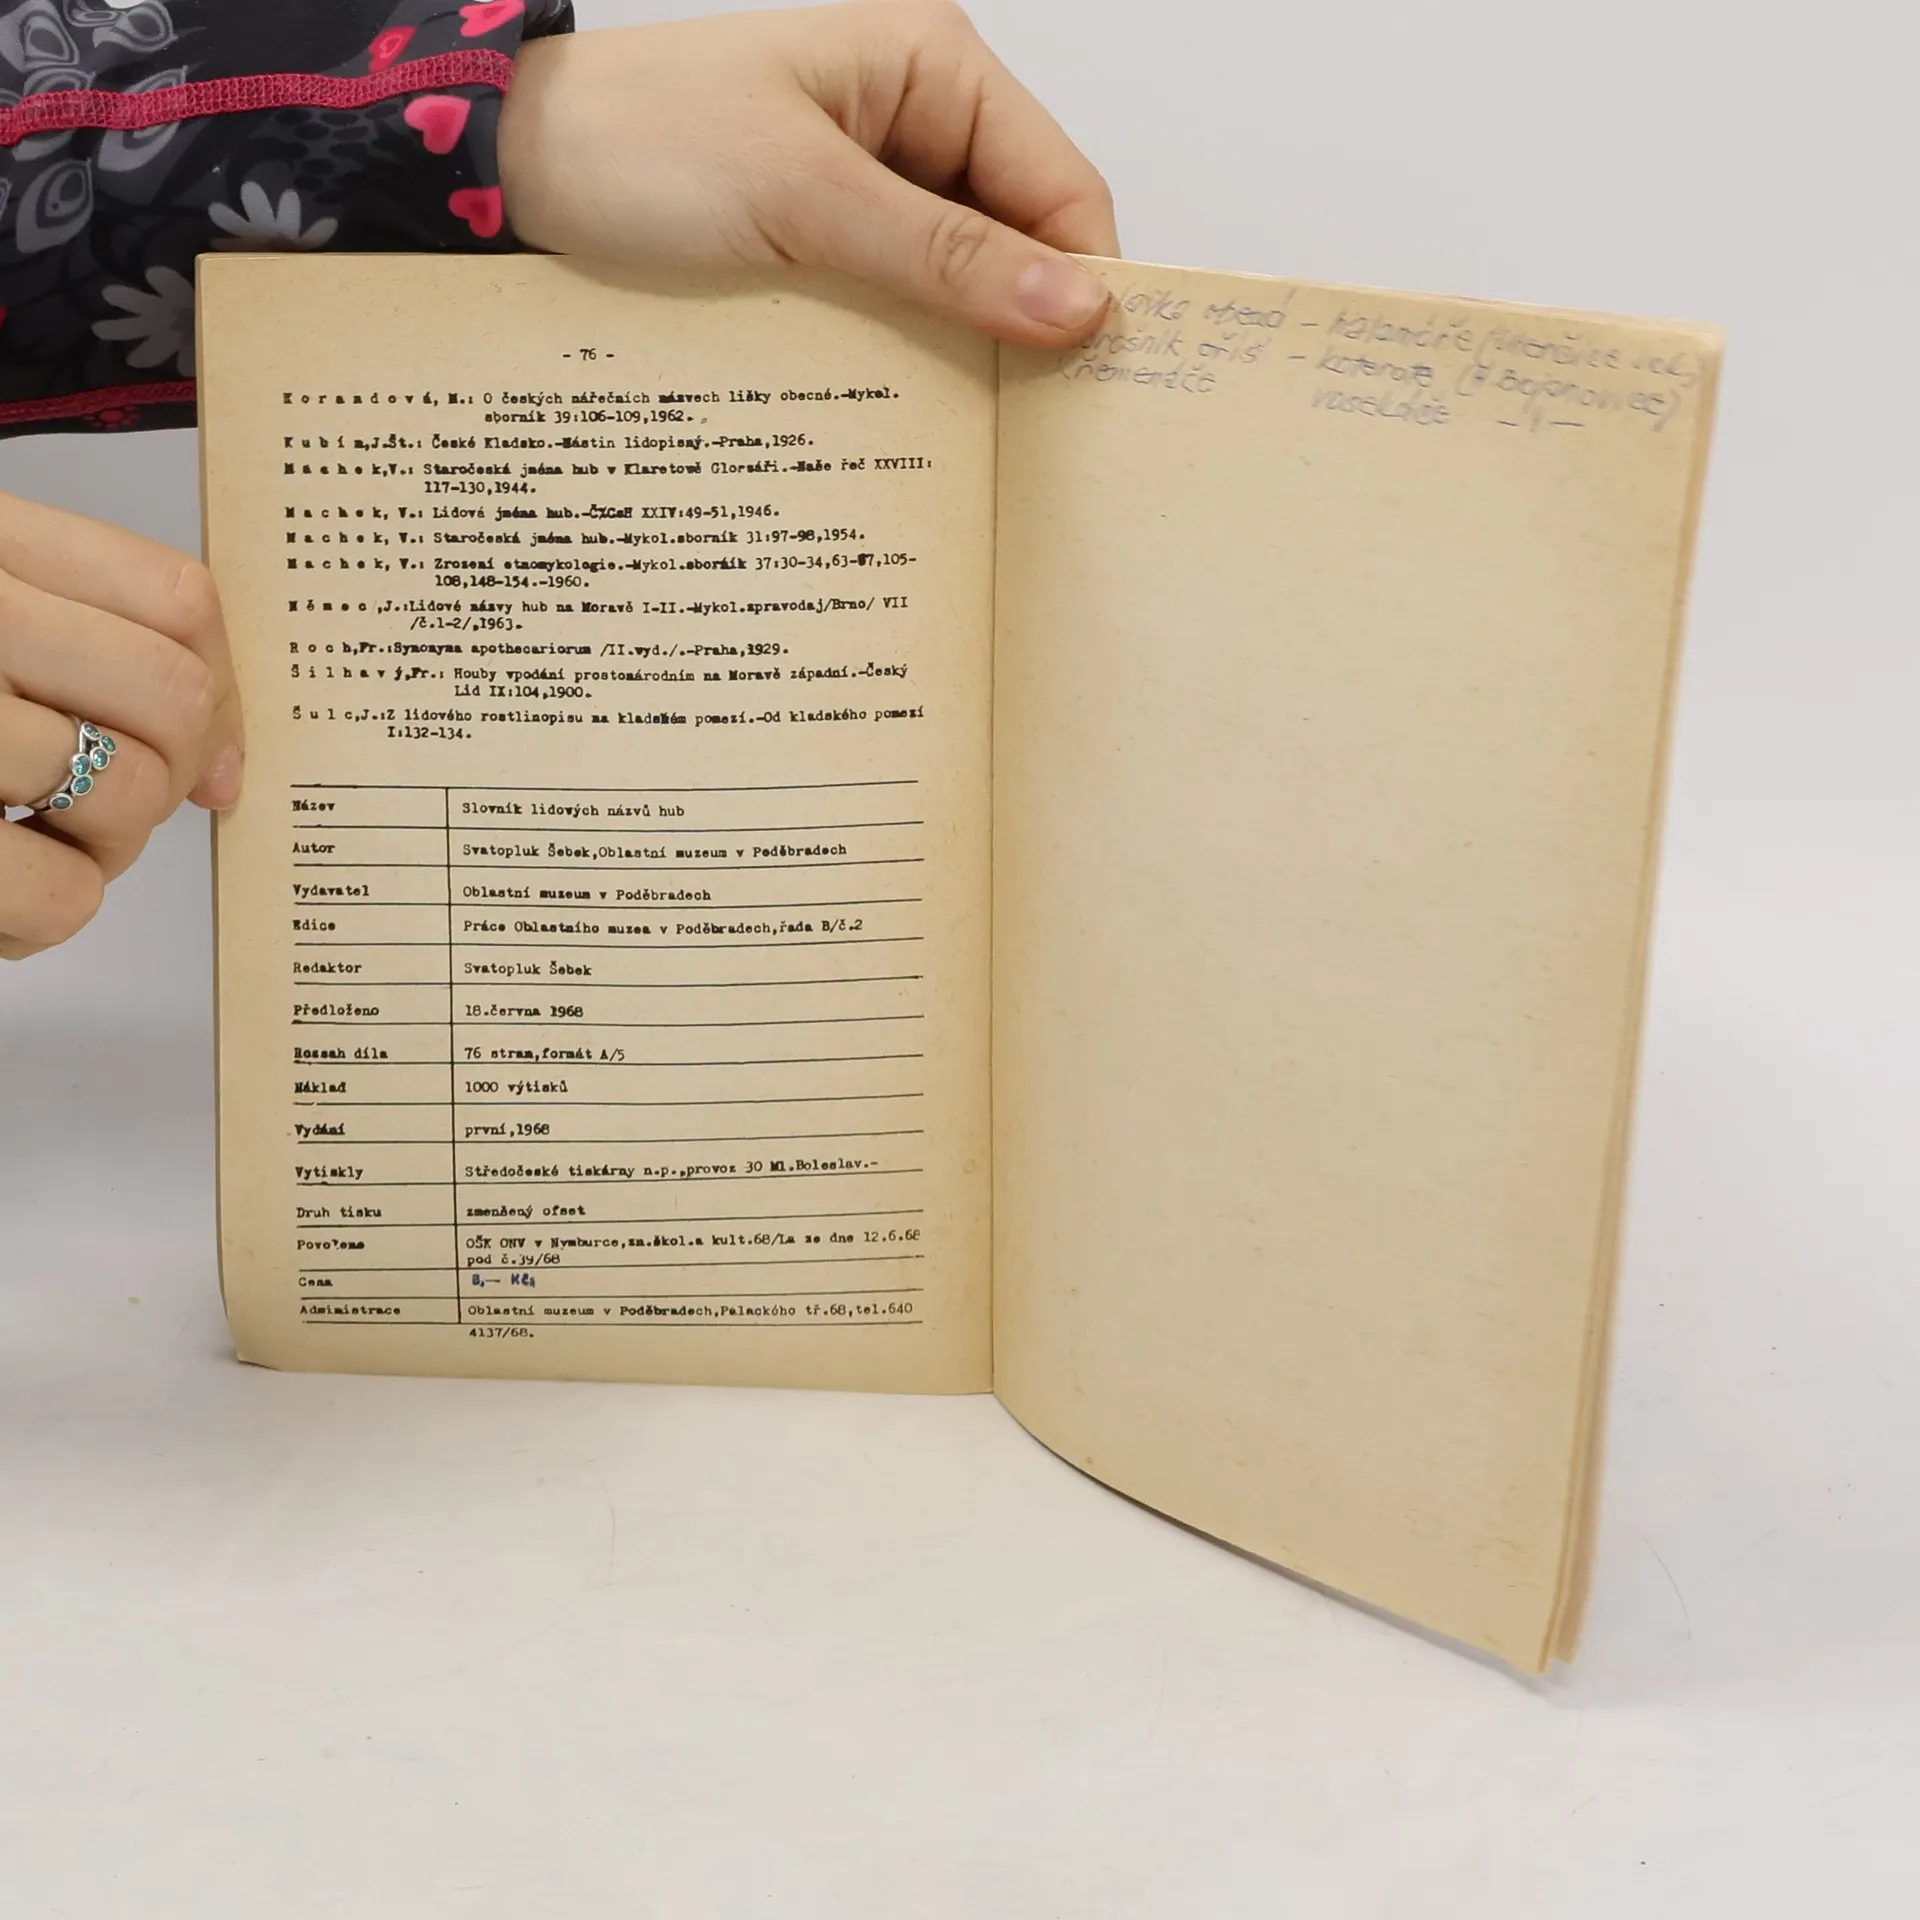 - 76 -
K o r a n d o v á, M.: O českých nářečních názvech lišky obecné.-Mykol.
sborník 39:106-109,1962.
K u b í n,J.Št.: České Kladsko.-Nástin lidopisný.-Praha,1926.
M a c h e k,V.: Staročeská jména hub v Klaretově Glosáři.-Naše řeč XXVIII:
117-130,1944.
M a c h e k, V.: Lidová jména hub.- XXIV:49-51,1946.
M a c h e k, V.: Staročeská jména hub.-Mykol.sborník 31:97-98,1954.
M a c h e k, V.: Zrození etnomykologie.-Mykol.sborník 37:30-34,63-67,105-
108,148-154.-1960.
N ě m e c ,J.:Lidové názvy hub na Moravě I-II.-Mykol.zpravodaj/Brno/ VII
/č.1-2/,1963.
R o c h,Fr.:Synonyma apothecariorum /II.vyd./.-Praha,1929.
Š i l h a v ý,Fr.: Houby vpodání prostonárodním na Moravě západní.-Český
Lid IX:104,1900.
Š u l c,J.:Z lidového rostlinopisu na kladském pomezí.-Od kladského pomezí
I:132-134.
Název Slovník lidových názvů hub
Autor Svatopluk Šebek,Oblastní muzeum v Poděbradech
Vydavatel Oblastní muzeum v Poděbradech
Edice Práce Oblastního muzea v Poděbradech,řada B/č.2
Redaktor Svatopluk Šebek
Předloženo 18.června 1968
Rozsah díla 76 stran,formát A/5
Náklad 1000 výtisků
Vydání první,1968
Vytiskly Středočeské tiskárny n.p.,provoz 30 Ml.Boleslav.-
Druh tisku zmenšený ofset
Povoleno OŠK ONV v Nymburce,zn.škol.a kult.68/La ze dne 12.6.68
pod č.39/68
Cena 8,- Kčs
Administrace Oblastní muzeum v Poděbradech,Palackého tř.68,tel.640
4137/68.